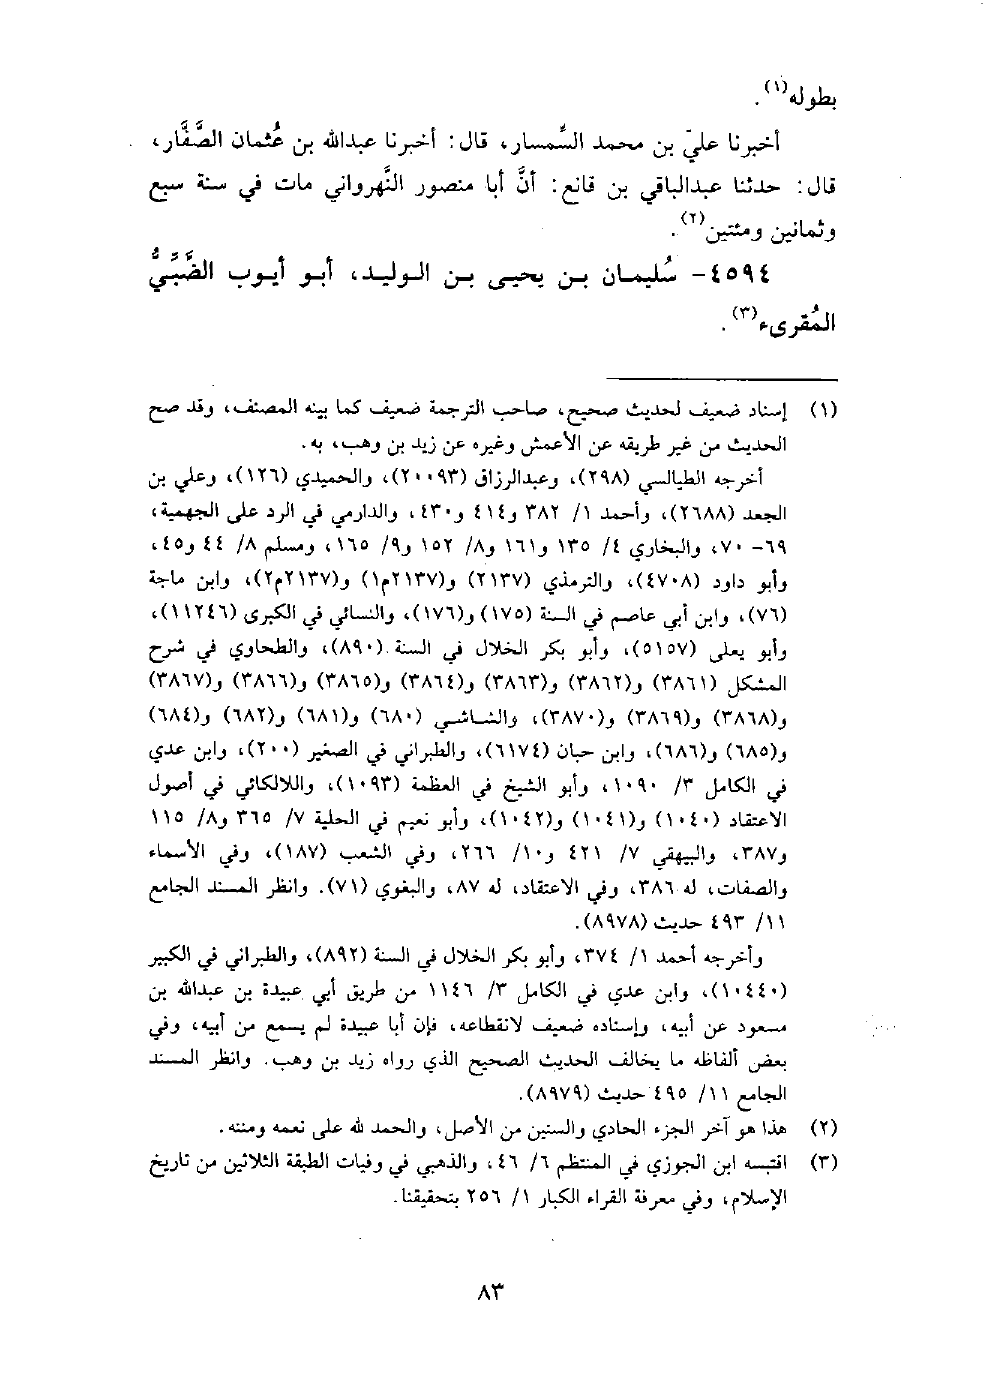 بطوله(١).
أخبرنا عليّ بن محمد السِّمسار، قال: أخبرنا عبدالله بن عُثمان الصَّفَّار،
قال: حدثنا عبدالباقي بن قانع: أنَّ أبا منصور النَّهرواني مات في سنة سبع
وثمانين ومئتين(٢).
٤٥٩٤- سُليمان بن يحيى بن الوليد، أبو أيوب الضَّبِّيُّ
المُقرىء(٣).
(١) إسناد ضعيف لحديث صحيح، صاحب الترجمة ضعيف كما بينه المصنف، وقد صح
الحديث من غير طريقه عن الأعمش وغيره عن زيد بن وهب، به.
أخرجه الطيالسي (٢٩٨)، وعبدالرزاق (٢٠٠٩٣)، والحميدي (١٢٦)، وعلي بن
الجعد (٢٦٨٨)، وأحمد ١/ ٣٨٢ و٤١٤ و٤٣٠، والدارمي في الرد على الجهمية،
٦٩- ٧٠، والبخاري ٤/ ١٣٥ و١٦١ و٨/ ١٥٢ و٩/ ١٦٥، ومسلم ٨/ ٤٤ و٤٥،
وأبو داود (٤٧٠٨)، والترمذي (٢١٣٧) و(٢١٣٧م١) و(٢١٣٧م٢)، وابن ماجة
(٧٦)، وابن أبي عاصم في السنة (١٧٥) و(١٧٦)، والنسائي في الكبرى (١١٢٤٦)،
وأبو يعلى (٥١٥٧)، وأبو بكر الخلال في السنة (٨٩٠)، والطحاوي في شرح
المشكل (٣٨٦١) و(٣٨٦٢) و(٣٨٦٣) و(٣٨٦٤) و(٣٨٦٥) و(٣٨٦٦) و(٣٨٦٧)
و(٣٨٦٨) و(٣٨٦٩) و(٣٨٧٠)، والشاشي (٦٨٠) و(٦٨١) و(٦٨٢) و(٦٨٤)
و(٦٨٥) و(٦٨٦)، وابن حبان (٦١٧٤)، والطبراني في الصغير (٢٠٠)، وابن عدي
في الكامل ٣/ ١٠٩٠، وأبو الشيخ في العظمة (١٠٩٣)، واللالكائي في أصول
الاعتقاد (١٠٤٠) و(١٠٤١) و(١٠٤٢)، وأبو نعيم في الحلية ٧/ ٣٦٥ و٨/ ١١٥
و٣٨٧، والبيهقي ٧/ ٤٢١ و١٠/ ٢٦٦، وفي الشعب (١٨٧)، وفي الأسماء
والصفات، له ٣٨٦، وفي الاعتقاد، له ٨٧، والبغوي (٧١). وانظر المسند الجامع
١١/ ٤٩٣ حديث (٨٩٧٨).
وأخرجه أحمد ١/ ٣٧٤، وأبو بكر الخلال في السنة (٨٩٢)، والطبراني في الكبير
(١٠٤٤٠)، وابن عدي في الكامل ٣/ ١١٤٦ من طريق أبي عبيدة بن عبدالله بن
مسعود عن أبيه، وإسناده ضعيف لانقطاعه، فإن أبا عبيدة لم يسمع من أبيه، وفي
بعض ألفاظه ما يخالف الحديث الصحيح الذي رواه زيد بن وهب. وانظر المسند
الجامع ١١/ ٤٩٥ حديث (٨٩٧٩).
(٢) هذا هو آخر الجزء الحادي والستين من الأصل، والحمد لله على نعمه ومننه.
(٣) اقتبسه ابن الجوزي في المنتظم ٦/ ٤٦، والذهبي في وفيات الطبقة الثلاثين من تاريخ
الإسلام، وفي معرفة القراء الكبار ١/ ٢٥٦ بتحقيقنا.
٨٣